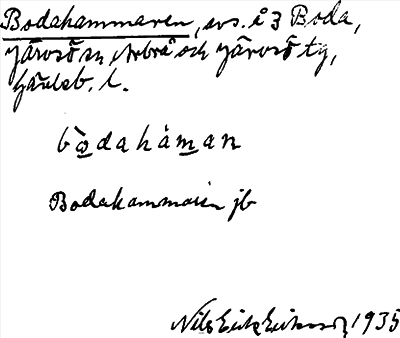 Bodahammaren, avs. å 3 Boda,
Järvsö sn, Arbrå och Järvsö tg,
Gävleb. l.
bòdahåman
Bodahammaren jb
Nils Erik Eriksson 1935